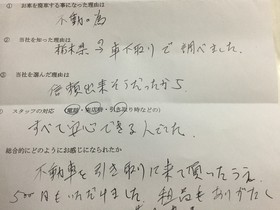 お車を廃車する事になった理由は
不動の為
② 当社を知った理由は
栃木県で車下取りで調べました。
③ 当社を選んだ理由は
信頼出来そうだったから
スタッフの対応 (電話・来店時・引き取り時などの)
すべて安心できる人でした。
総合的にどのようにお感じになられたか
不動車を引き取りに来て頂いたうえ
500円もいただけました。粗品もありがたく